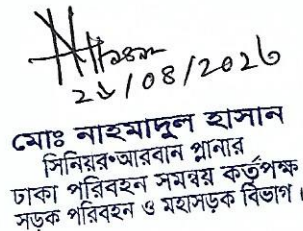 ২৮/০8/2026
মোঃ নাহমাদুল হাসান
সিনিয়র আরবান প্লানার
ঢাকা পরিবহন সমন্বয় কর্তৃপক্ষ
সড়ক পরিবহন ও মহাসড়ক বিভাগ।